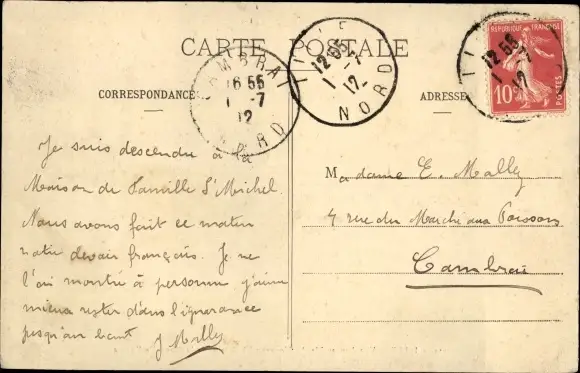 CARTE POSTALE
CORRESPONDANCE
ADRESSE
CAMBRAI
16 55
1 -7
12
NORD
LILLE
12 55
1 -7
12
NORD
12 55
1 -7
12
REPUBLIQUE FRANÇAISE
10c
POSTES
Je suis descendu à la
Maison de famille St Michel.
Nous avons fait ce matin
notre devoir français. Je ne
l'ai montré à personne j'aime
mieux rester dans l'ignorance
jusqu'au bout
J Mally
Madame E. Mally
4 rue du Marché aux Poissons
Cambrai